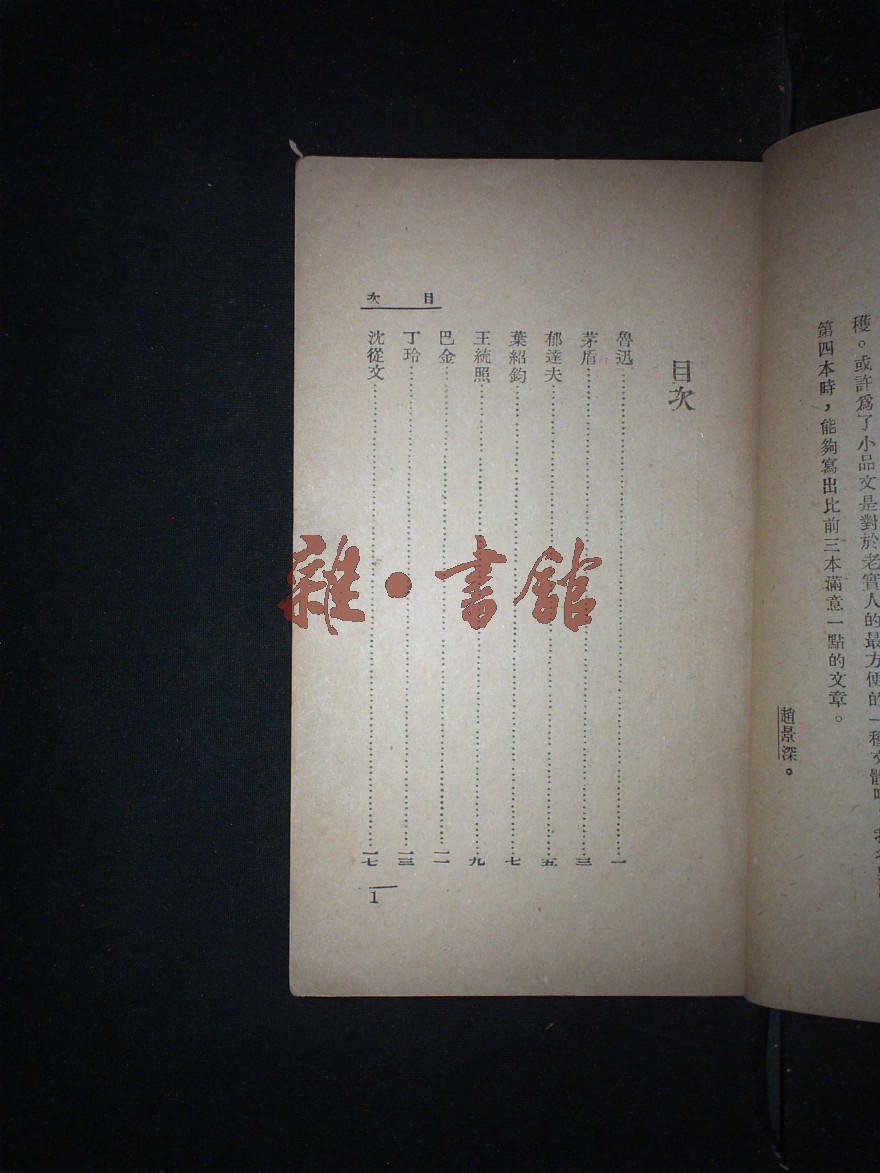 穫。或許爲了小品文是對於老實人的最方便的一種文體
第四本時，能夠寫出比前三本滿意一點的文章。
趙景深。
目次
魯迅……一
茅盾……三
郁達夫……五
葉紹鈞……七
王統照……九
巴金……一一
丁玲……一三
沈從文……一七
目次
1
雜·書館